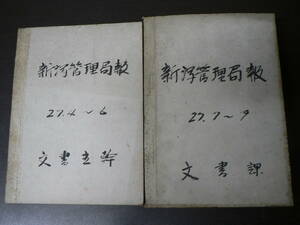 新潟管理局報
27.4〜6
文書主幹
新潟管理局報
27.7〜9
文書課